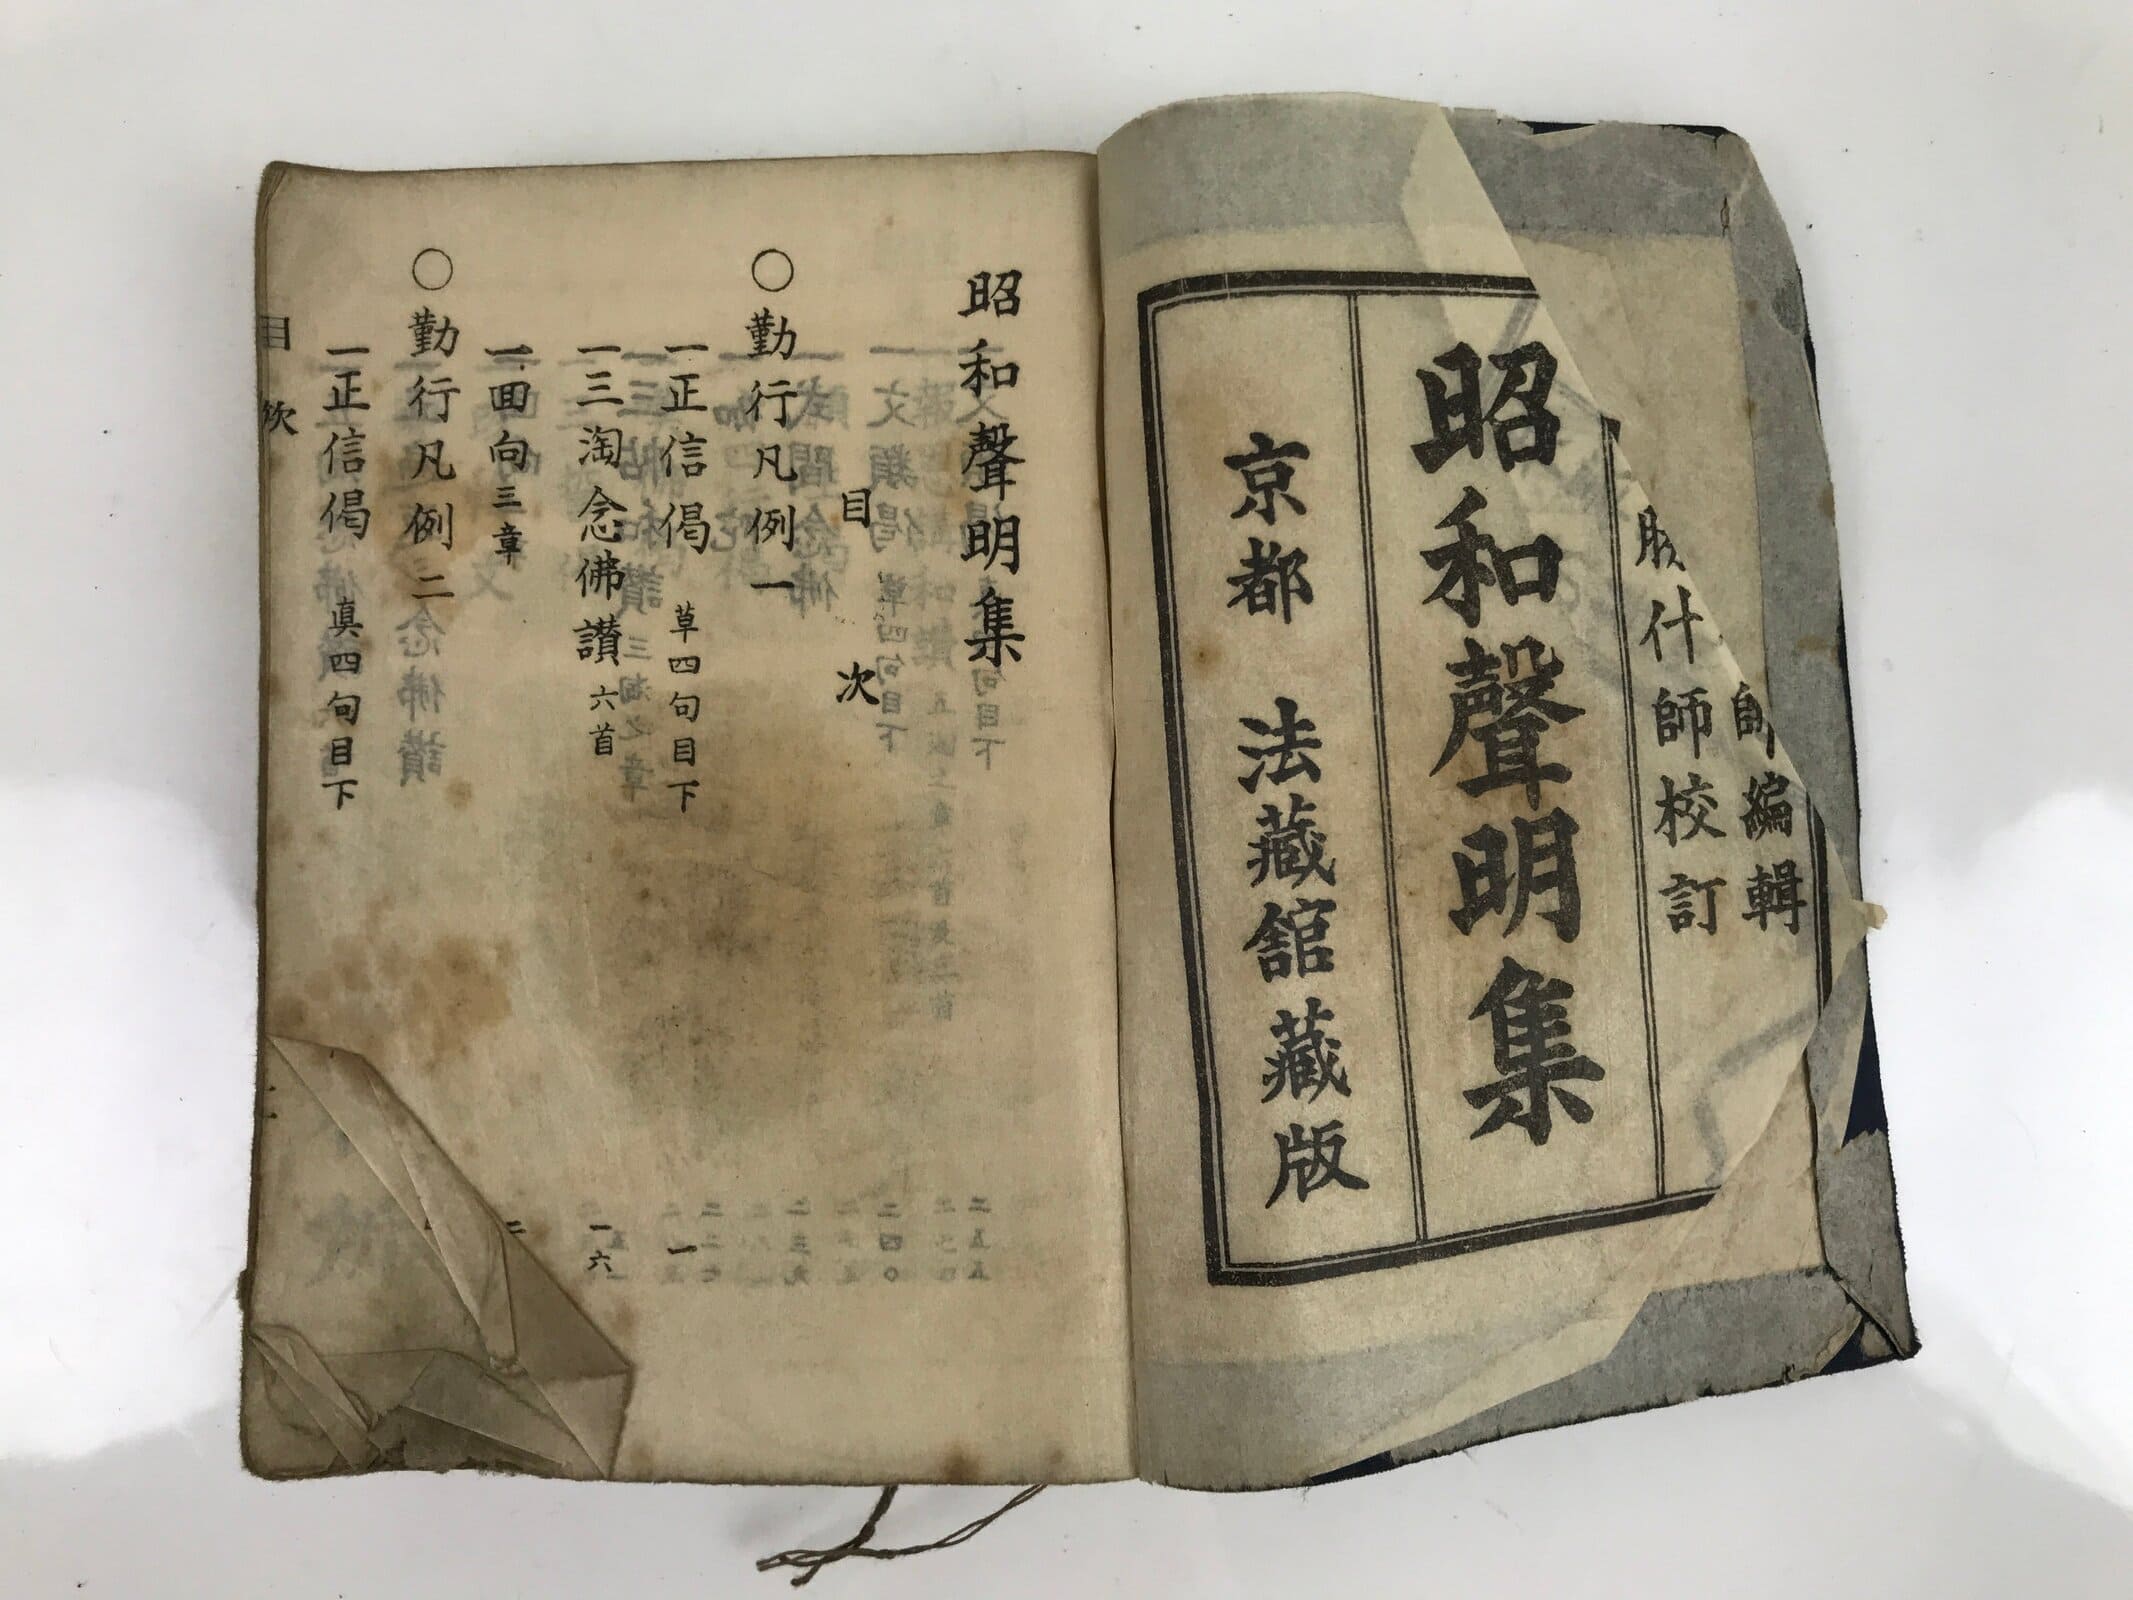 師編輯
什師校訂
昭和聲明集
京都 法藏舘藏版
昭和聲明集
目次
○勤行凡例一
一正信偈 草四句目下 一
一三淘念佛讃 六首 一六
一回向 三章 二
○勤行凡例二
一正信偈 眞四句目下
目次